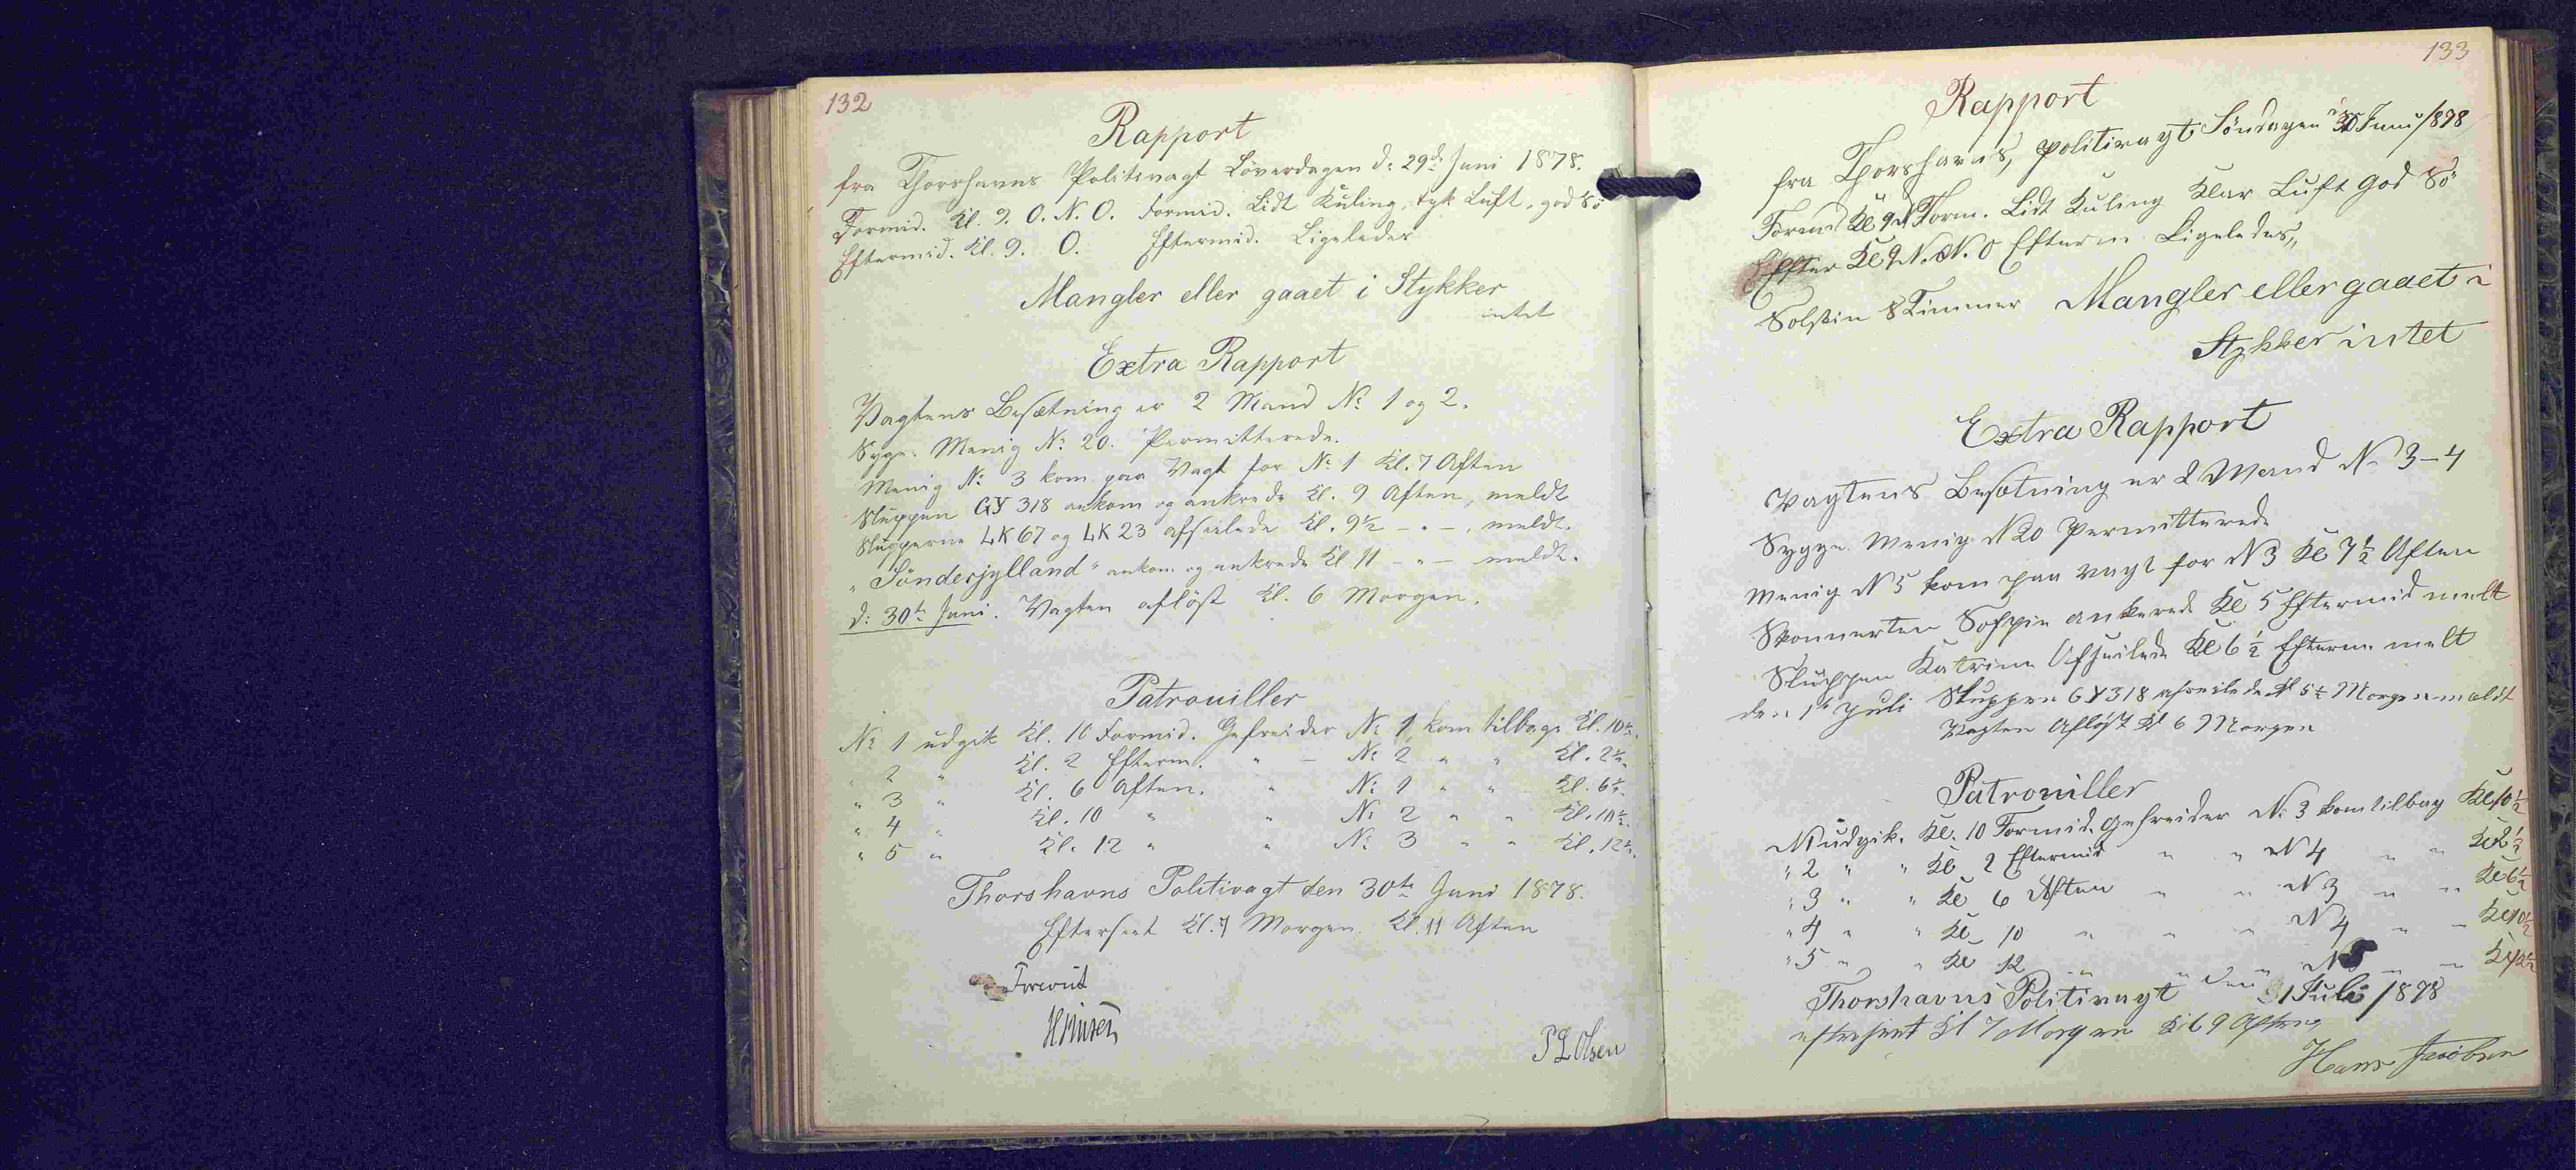 132
Rapport
fra Thorshavns Politivagt Löverdagen d: 29de Juni 1878.
Formid. Kl. 9. O.N.O. Formid. Lidt Kuling, tyk Luft, god Sö
Eftermid. Kl. 9. O. Eftermid. Ligeledes
Mangler eller gaaet i Stykker
intet
Extra Rapport
Vagtens Besætning er 2 Mand No 1 og 2.
Syge. Menig No 20. Permitterede.
Menig No 3 kom paa Vagt for No 1 Kl. 7 Aften
Sluppen GY 318 ankom og ankrede Kl. 9 Aften, meldt
Slupperne LK 67 og LK 23 afseilede Kl. 9½ - " - . meldt.
"Sönderjylland" ankom og ankrede Kl. 11 - " - meldt.
d: 30te Juni. Vagten aflöst Kl. 6 Morgen.
Patrouiller
No 1 udgik Kl. 10 Formid. Gefreider No 1 kom tilbage Kl. 10½.
" 2 " Kl. 2 Efterm. " - No 2 " " Kl. 2½.
" 3 " Kl. 6 Aften. " No 1 " " Kl. 6½.
" 4 " Kl. 10 " " No 2 " " Kl. 10½.
" 5 " Kl. 12 " " No 3 " " Kl. 12½.
Thorshavns Politivagt den 30te Juni 1878.
Efterseet Kl. 7 Morgen. Kl. 11 Aften
P L Olsen
133
Rapport
fra Thorshavns, politivagt Söndagen 30 Juni 1878
Formd Kl 9 N Form. Lidt Kuling Klar Luft god Sö
Efter Kl 9 N.N.O Efterm. Ligeledes,,
Solskin 8 Timmer Mangler eller gaaet i
Stykker intet
Extra Rapport
Vagtens Besætning er 2 Mand N. 3-4
Sygge. Menig N 20 Permitterede
Menig N 5 kom paa vagt for N 3 Kl 7½ Aften
Skonnerten Soffie ankerede Kl 5 Eftermid melt
Sluppen Katrine Afseilede Kl 6½ Efterm. melt
den 1te Juli Sluppen GY 318 afseilede Kl 5½ Morgen meldt
Vagten Aflöst Kl 6 Morgen
Patrouiller
N 1 udgik. Kl. 10 Formid. Gefreider No 3 kom tilbag Kl 10½
" 2 " " Kl 2 Eftermid " " N 4 " " Kl 2½
" 3 " " Kl 6 Aften " " N 3 " " Kl 6½
" 4 " " Kl 10 " " " N 4 " " Kl 10½
" 5 " " Kl 12 " " " N 5 " " Kl 12½
Thorshavns Politivagt den 1 Juli 1878
efterseet Kl 7 Morgen Kl 9 Aften
Hans Jacobsen